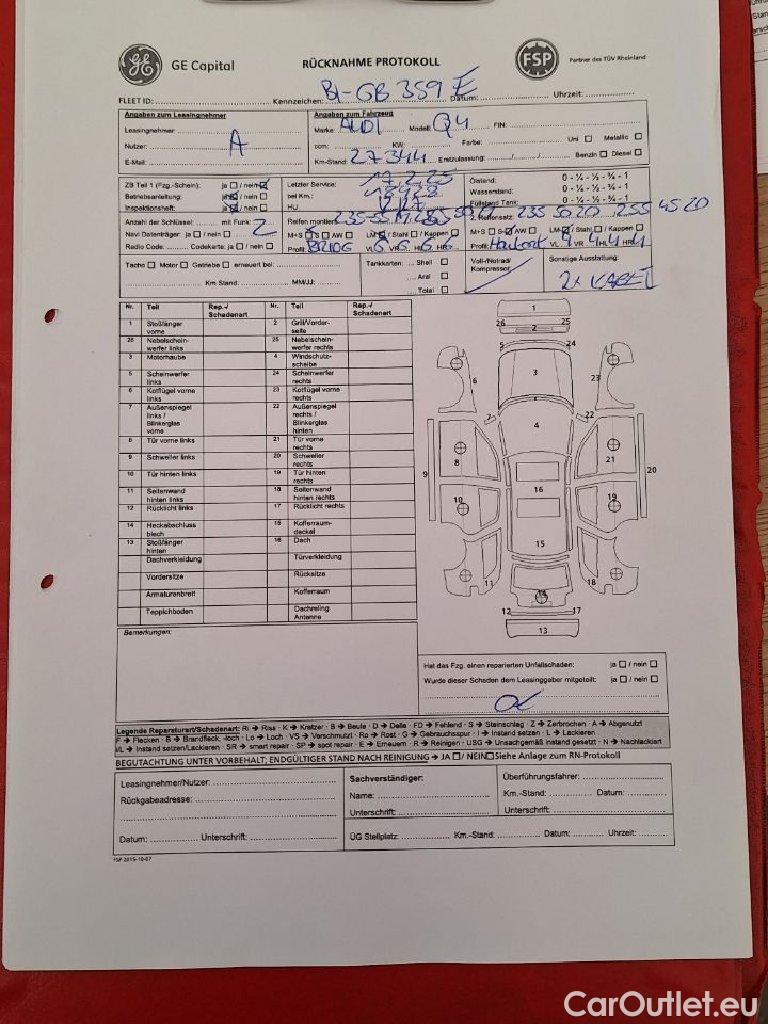 GE Capital
RÜCKNAHME PROTOKOLL
FSP
Partner des TÜV Rheinland
FLEET ID: Kennzeichen: BI-GB 359 E Datum: Uhrzeit:
Angaben zum Leasingnehmer
Leasingnehmer:
Nutzer: A
E-Mail:
Angaben zum Fahrzeug
Marke: AUDI Modell: Q4 FIN:
ccm: KW: Farbe: Uni Metallic
Km-Stand: 27344 Erstzulassung: Benzin Diesel
ZB Teil 1 (Fzg.-Schein): ja / nein
Betriebsanleitung: ja / nein
Inspektionsheft: ja / nein
Letzter Service: 17.2.25
bei Km.:
HU
Ölstand: 0 - ¼ - ½ - ¾ - 1
Wasserstand: 0 - ¼ - ½ - ¾ - 1
Füllstand Tank: 0 - ¼ - ½ - ¾ - 1
Anzahl der Schlüssel: mit Funk: 2
Navi Datenträger: ja / nein
Radio Code: Codekarte: ja / nein
Reifen montiert:
M+S S AW LM / Stahl / Kappen
Profil: VL VR HL HR
2. Reifensatz: 235 50 20 255 45 20
M+S S AW LM / Stahl / Kappen
Profil: VL 4 VR 4 HL 4 HR 4
Tacho Motor Getriebe erneuert bei:
Km.-Stand: MM/JJ:
Tankkarten: Shell
Aral
Total
Voll-/Notrad/
Kompressor
Sonstige Ausstattung:
2x KABEL
Nr. Teil Rep.-/ Schadenart Nr. Teil Rep.-/ Schadenart
1 Stoßfänger vorne 2 Grill/Vorderseite
26 Nebelscheinwerfer links 25 Nebelscheinwerfer rechts
3 Motorhaube 4 Windschutzscheibe
5 Scheinwerfer links 24 Scheinwerfer rechts
6 Kotflügel vorne links 23 Kotflügel vorne rechts
7 Außenspiegel links / Blinkerglas vorne 22 Außenspiegel rechts / Blinkerglas hinten
8 Tür vorne links 21 Tür vorne rechts
9 Schweller links 20 Schweller rechts
10 Tür hinten links 19 Tür hinten rechts
11 Seitenwand hinten links 18 Seitenwand hinten rechts
12 Rücklicht links 17 Rücklicht rechts
14 Heckabschlussblech 15 Kofferraumdeckel
13 Stoßfänger hinten 16 Dach
Dachverkleidung Türverkleidung
Vordersitze Rücksitze
Armaturenbrett Kofferraum
Teppichboden Dachreling Antenne
1
26 25
2
5 24
3
6 23
7 22
4
8 21
9 20
10 16 19
15
11 14 18
12 17
13
Bemerkungen:
Hat das Fzg. einen reparierten Unfallschaden: ja / nein
Wurde dieser Schaden dem Leasinggeber mitgeteilt: ja / nein
Legende Reparaturart/Schadenart: Ri → Riss · K → Kratzer · B → Beule · D → Delle · FD → Fehlend · S → Steinschlag · Z → Zerbrochen · A → Abgenutzt
F → Flecken · B → Brandfleck, -loch · Lo → Loch · VS → Verschmutzt · Ro → Rost · G → Gebrauchsspur · I → Instand setzen · L → Lackieren
I/L → Instand setzen/Lackieren · SR → smart repair · SP → spot repair · E → Erneuern · R → Reinigen · USG → Unsachgemäß instand gesetzt · N → Nachlackiert
BEGUTACHTUNG UNTER VORBEHALT; ENDGÜLTIGER STAND NACH REINIGUNG → JA / NEIN Siehe Anlage zum RN-Protokoll
Leasingnehmer/Nutzer:
Rückgabeadresse:
Datum: Unterschrift:
Sachverständiger:
Name:
Unterschrift:
Überführungsfahrer:
Km.-Stand: Datum:
Unterschrift:
ÜG Stellplatz: Km.-Stand: Datum: Uhrzeit:
FSP 2015-10-07
CarOutlet.eu